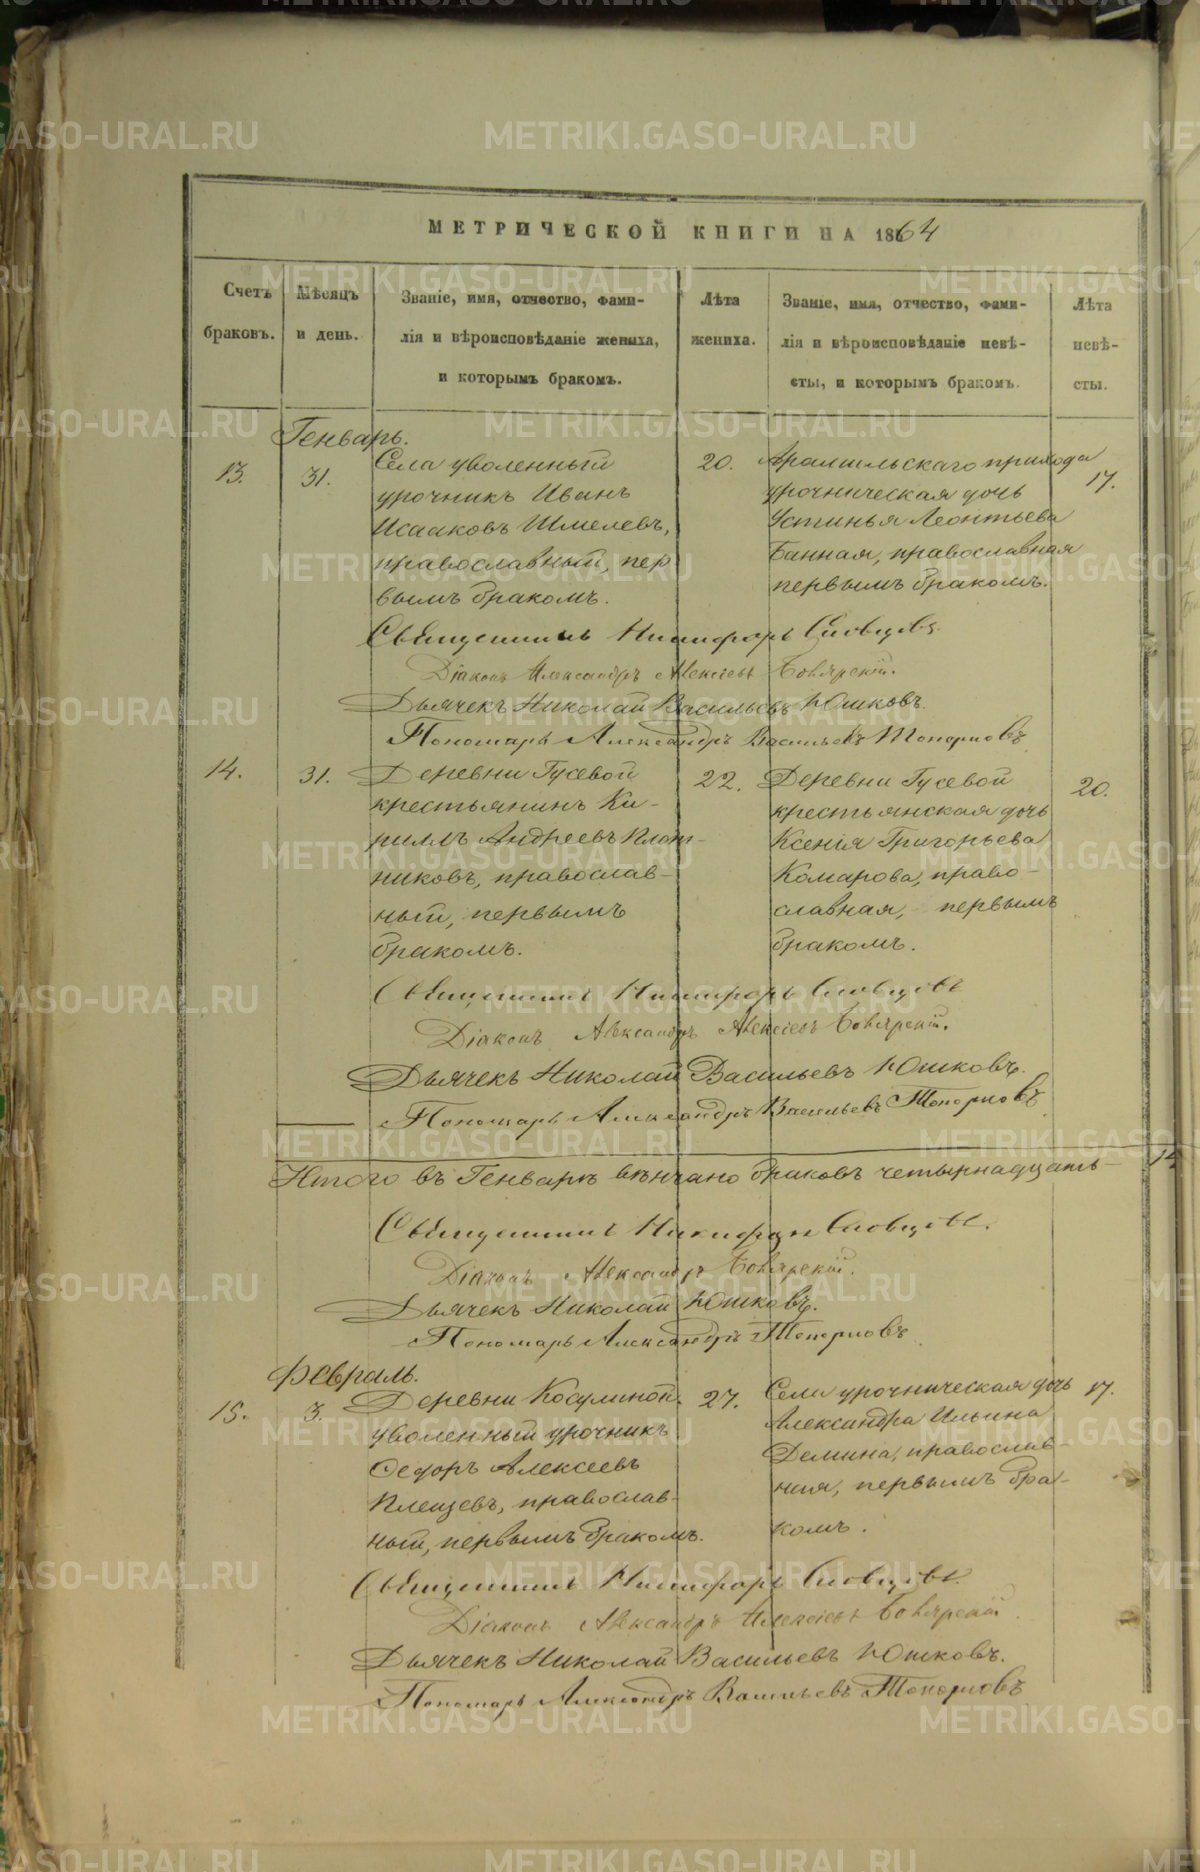 МЕТРИЧЕСКОЙ КНИГИ НА 1864
Счетъ браковъ.
Мѣсяцъ и день.
Званіе, имя, отчество, фами-
лія и вѣроисповѣданіе жениха,
и которымъ бракомъ.
Лѣта жениха.
Званіе, имя, отчество, фами-
лія и вѣроисповѣданіе невѣ-
сты, и которымъ бракомъ.
Лѣта невѣ-
сты.
Генварь.
13.
31.
Села уволенный
урочникъ Иванъ
Исааковъ Шмелевъ,
православный, пер
вымъ бракомъ.
20.
Арамильскаго прихода
урочническая дочь
Устинья Леонтьева
Банная, православная
первымъ бракомъ.
17.
Священникъ Никифоръ Словцовъ
Діаконъ Александръ Алексѣевъ Боярскій.
Дьячекъ Николай Васильевъ Юшковъ.
Пономарь Александръ Васильевъ Топорковъ
14.
31.
Деревни Гусевой
крестьянинъ Ки-
риллъ Андреевъ Плот-
никовъ, православ-
ный, первымъ
бракомъ.
22.
Деревни Гусевой
крестьянская дочь
Ксенія Григорьева
Комарова, право-
славная, первымъ
бракомъ.
20.
Священникъ Никифоръ Словцовъ
Діаконъ Александръ Алексѣевъ Боярскій.
Дьячекъ Николай Васильевъ Юшковъ.
Пономарь Александръ Васильевъ Топорковъ
Итого въ Генварѣ вѣнчано браковъ четырнадцать - 14
Священникъ Никифоръ Словцовъ.
Діаконъ Александръ Боярскій.
Дьячекъ Николай Юшковъ.
Пономарь Александръ Топорковъ
Февраль.
15.
3.
Деревни Косулиной
уволенный урочникъ
Ѳедоръ Алексеевъ
Плещевъ, православ-
ный, первымъ бракомъ.
27.
Села урочническая дочь
Александра Ильина
Демина, православ-
ная, первымъ бра-
комъ.
17.
Священникъ Никифоръ Словцовъ.
Діаконъ Александръ Алексѣевъ Боярскій
Дьячекъ Николай Васильевъ Юшковъ.
Пономарь Александръ Васильевъ Топорковъ
METRIKI.GASO-URAL.RU